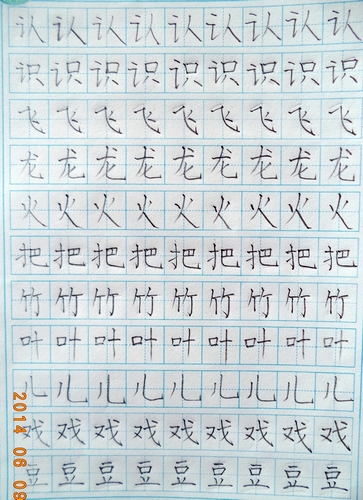 认认认认认认认认认
识识识识识识识识识
飞飞飞飞飞飞飞飞飞
龙龙龙龙龙龙龙龙龙
火火火火火火火火火
把把把把把把把把把
竹竹竹竹竹竹竹竹竹
叶叶叶叶叶叶叶叶叶
儿儿儿儿儿儿儿儿儿
戏戏戏戏戏戏戏戏戏
豆豆豆豆豆豆豆豆豆
2014 06 09